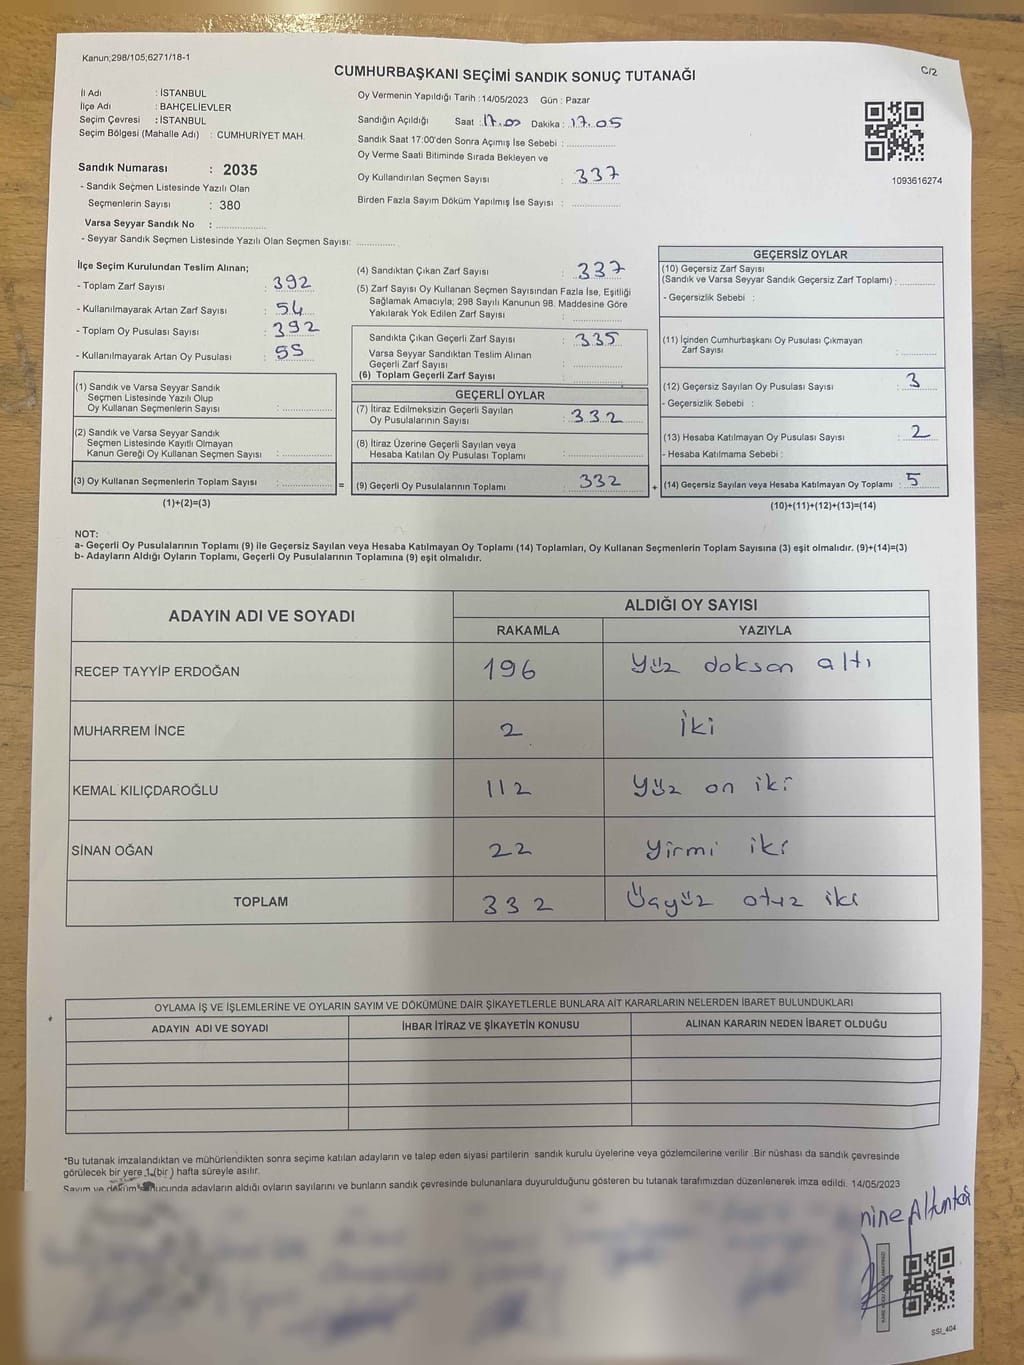 Kanun;298/105;6271/18-1
C/2
CUMHURBAŞKANI SEÇİMİ SANDIK SONUÇ TUTANAĞI
İl Adı : İSTANBUL
İlçe Adı : BAHÇELİEVLER
Seçim Çevresi : İSTANBUL
Seçim Bölgesi (Mahalle Adı) : CUMHURİYET MAH.
Sandık Numarası : 2035
- Sandık Seçmen Listesinde Yazılı Olan
Seçmenlerin Sayısı : 380
Varsa Seyyar Sandık No :
- Seyyar Sandık Seçmen Listesinde Yazılı Olan Seçmen Sayısı:
Oy Vermenin Yapıldığı Tarih : 14/05/2023 Gün : Pazar
Sandığın Açıldığı Saat : 17.00 Dakika : 17.05
Sandık Saat 17:00'den Sonra Açımış İse Sebebi :
Oy Verme Saati Bitiminde Sırada Bekleyen ve
Oy Kullandırılan Seçmen Sayısı : 337
Birden Fazla Sayım Döküm Yapılmış İse Sayısı :
1093616274
İlçe Seçim Kurulundan Teslim Alınan;
- Toplam Zarf Sayısı : 392
- Kullanılmayarak Artan Zarf Sayısı : 54
- Toplam Oy Pusulası Sayısı : 392
- Kullanılmayarak Artan Oy Pusulası : 55
(1) Sandık ve Varsa Seyyar Sandık
Seçmen Listesinde Yazılı Olup
Oy Kullanan Seçmenlerin Sayısı :
(2) Sandık ve Varsa Seyyar Sandık
Seçmen Listesinde Kayıtlı Olmayan
Kanun Gereği Oy Kullanan Seçmen Sayısı :
(3) Oy Kullanan Seçmenlerin Toplam Sayısı : =
(1)+(2)=(3)
(4) Sandıktan Çıkan Zarf Sayısı : 337
(5) Zarf Sayısı Oy Kullanan Seçmen Sayısından Fazla İse, Eşitliği
Sağlamak Amacıyla; 298 Sayılı Kanunun 98. Maddesine Göre
Yakılarak Yok Edilen Zarf Sayısı :
Sandıkta Çıkan Geçerli Zarf Sayısı : 335
Varsa Seyyar Sandıktan Teslim Alınan
Geçerli Zarf Sayısı :
(6) Toplam Geçerli Zarf Sayısı :
GEÇERLİ OYLAR
(7) İtiraz Edilmeksizin Geçerli Sayılan
Oy Pusulalarının Sayısı : 332
(8) İtiraz Üzerine Geçerli Sayılan veya
Hesaba Katılan Oy Pusulası Toplamı :
(9) Geçerli Oy Pusulalarının Toplamı : 332 +
GEÇERSİZ OYLAR
(10) Geçersiz Zarf Sayısı
(Sandık ve Varsa Seyyar Sandık Geçersiz Zarf Toplamı) :
- Geçersizlik Sebebi :
(11) İçinden Cumhurbaşkanı Oy Pusulası Çıkmayan
Zarf Sayısı :
(12) Geçersiz Sayılan Oy Pusulası Sayısı : 3
- Geçersizlik Sebebi :
(13) Hesaba Katılmayan Oy Pusulası Sayısı : 2
- Hesaba Katılmama Sebebi :
(14) Geçersiz Sayılan veya Hesaba Katılmayan Oy Toplamı : 5
(10)+(11)+(12)+(13)=(14)
NOT:
a- Geçerli Oy Pusulalarının Toplamı (9) ile Geçersiz Sayılan veya Hesaba Katılmayan Oy Toplamı (14) Toplamları, Oy Kullanan Seçmenlerin Toplam Sayısına (3) eşit olmalıdır. (9)+(14)=(3)
b- Adayların Aldığı Oyların Toplamı, Geçerli Oy Pusulalarının Toplamına (9) eşit olmalıdır.
ADAYIN ADI VE SOYADI
ALDIĞI OY SAYISI
RAKAMLA YAZIYLA
RECEP TAYYİP ERDOĞAN 196 Yüz doksan altı
MUHARREM İNCE 2 İki
KEMAL KILIÇDAROĞLU 112 Yüz on iki
SİNAN OĞAN 22 Yirmi iki
TOPLAM 332 Üçyüz otuz iki
OYLAMA İŞ VE İŞLEMLERİNE VE OYLARIN SAYIM VE DÖKÜMÜNE DAİR ŞİKAYETLERLE BUNLARA AİT KARARLARIN NELERDEN İBARET BULUNDUKLARI
ADAYIN ADI VE SOYADI İHBAR İTİRAZ VE ŞİKAYETİN KONUSU ALINAN KARARIN NEDEN İBARET OLDUĞU
*Bu tutanak imzalandıktan ve mühürlendikten sonra seçime katılan adayların ve talep eden siyasi partilerin sandık kurulu üyelerine veya gözlemcilerine verilir. Bir nüshası da sandık çevresinde
görülecek bir yere 1 (bir ) hafta süreyle asılır.
Sayım ve döküm sonucunda adayların aldığı oyların sayılarını ve bunların sandık çevresinde bulunanlara duyurulduğunu gösteren bu tutanak tarafımızdan düzenlenerek imza edildi. 14/05/2023
SSI_404